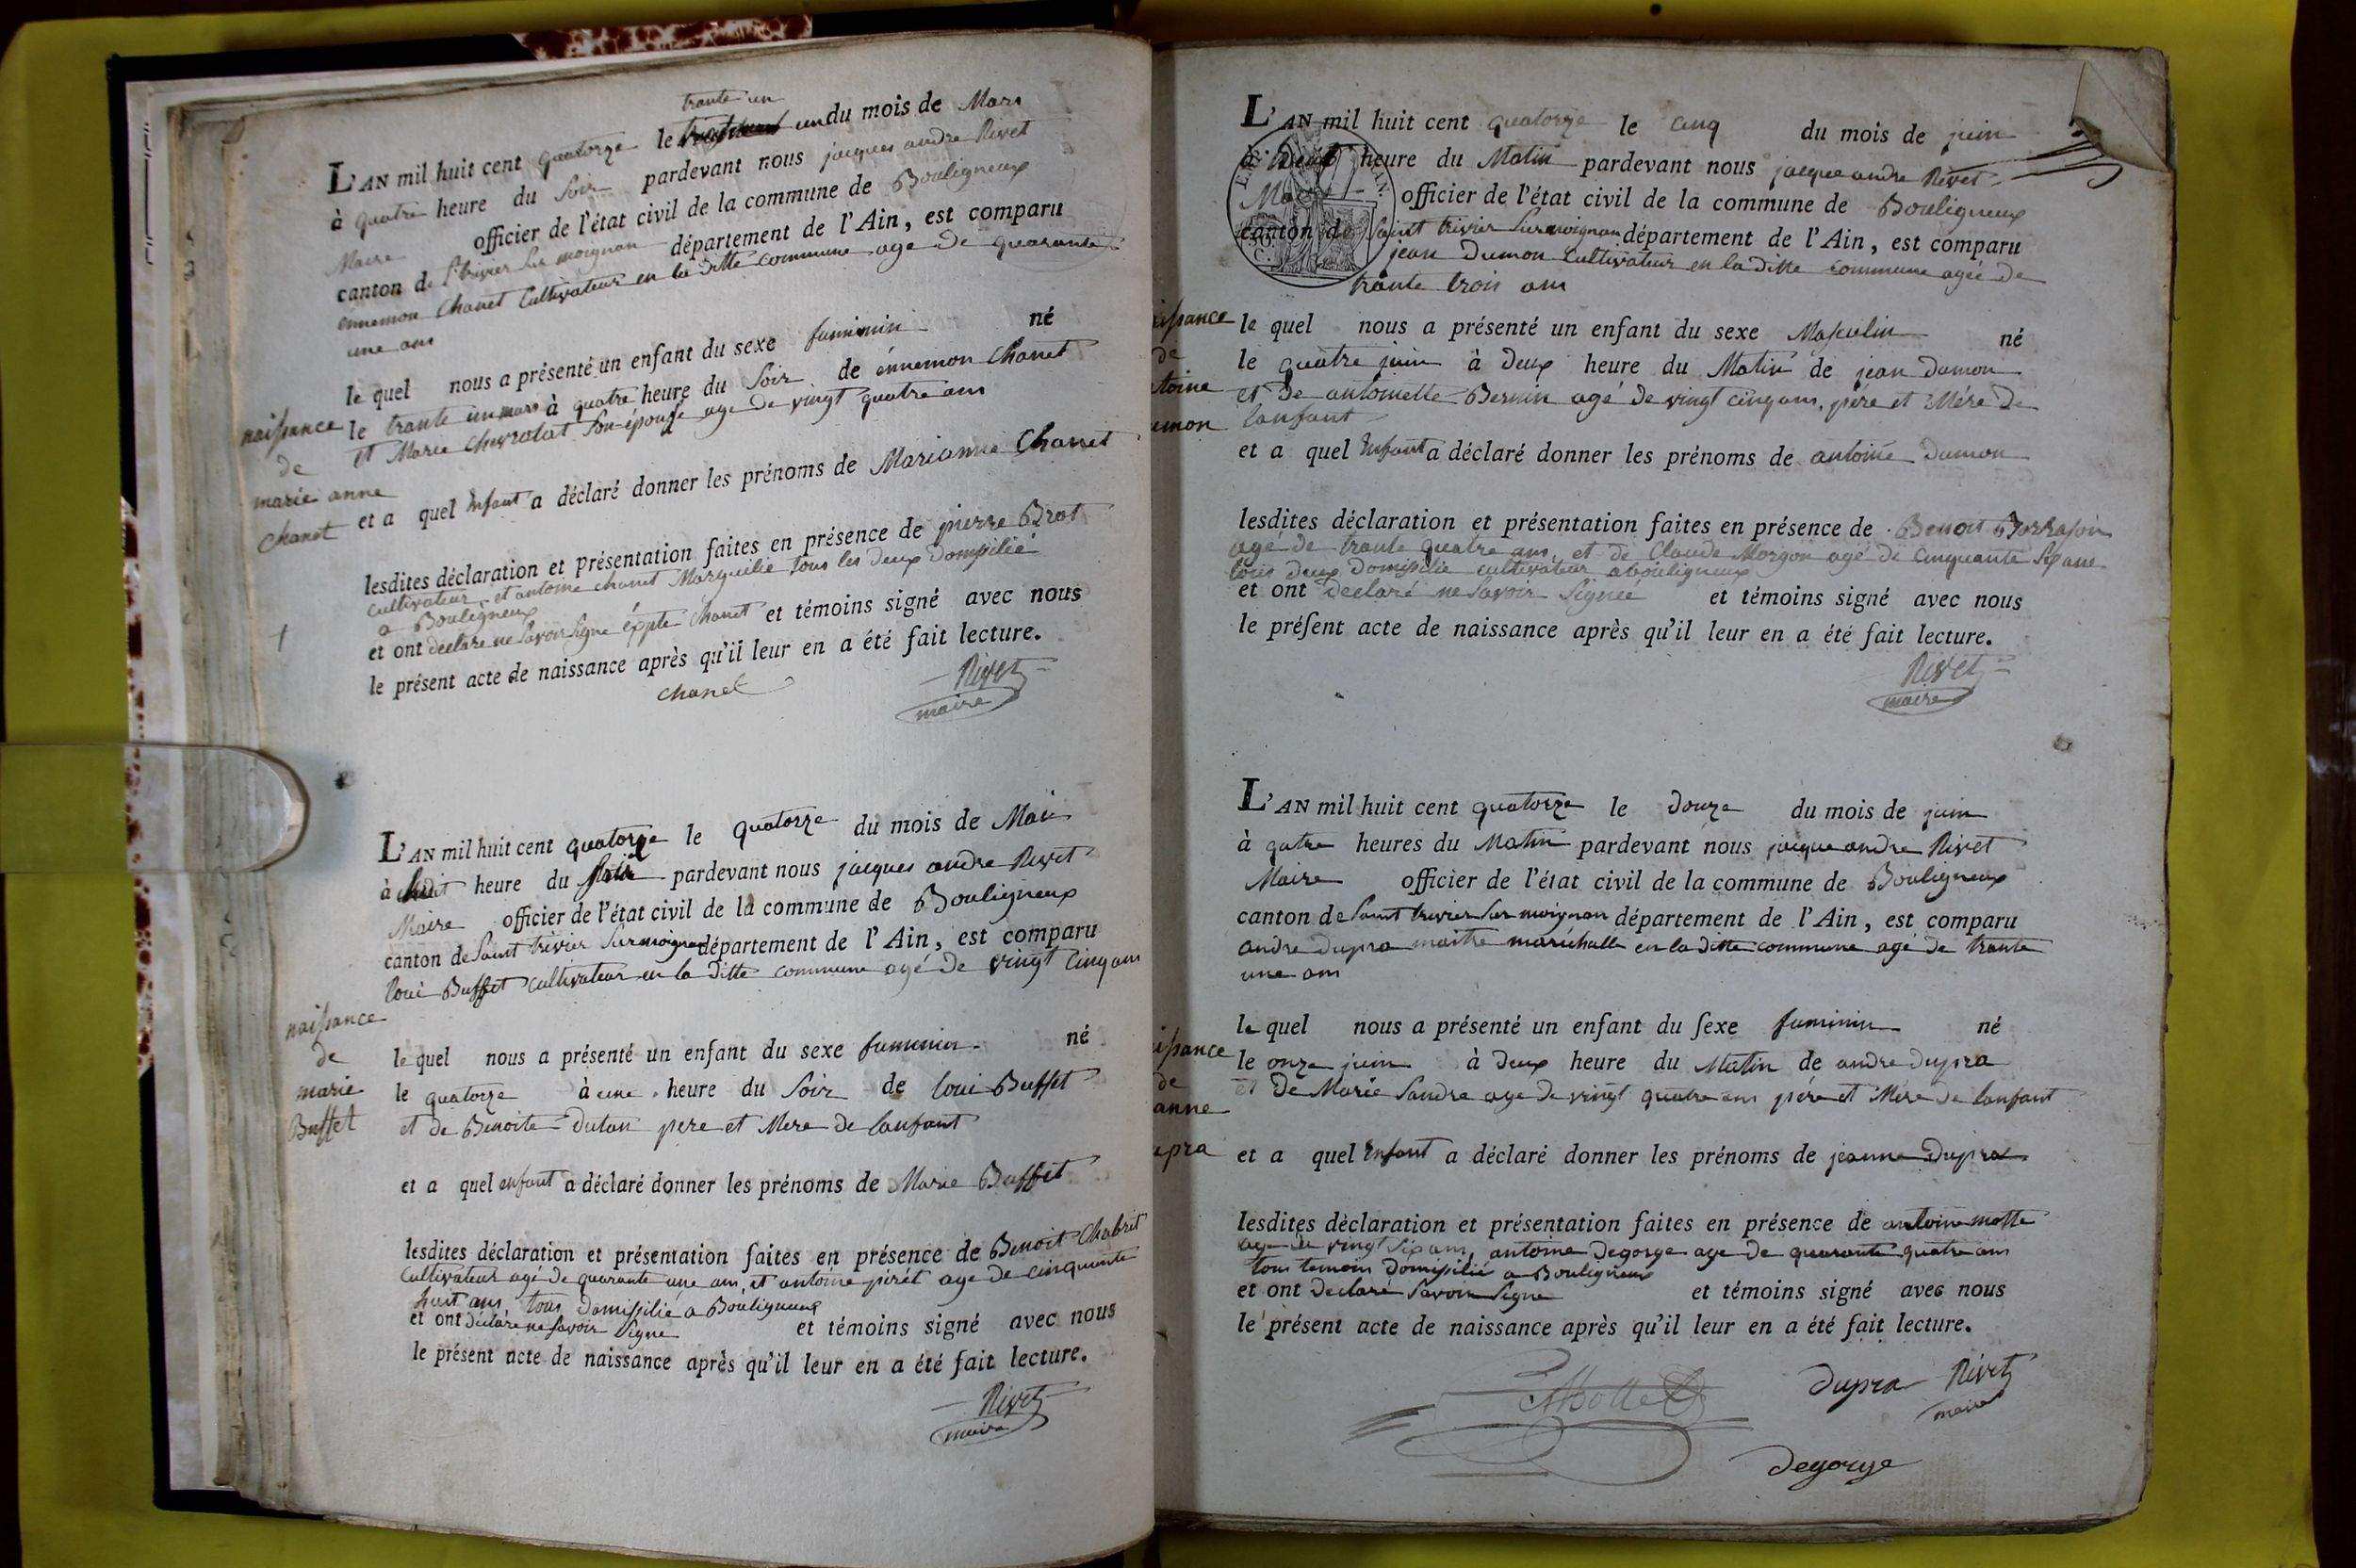 trante un
L'AN mil huit cent quatorze le un du mois de Mars
à quatre heure du Soir pardevant nous jacques andre Rivet
Maire officier de l'état civil de la commune de Bouligneux
canton de St trivier Sur moignan département de l'Ain, est comparu
énnemon Chanet Cultivateur en la ditte commune age de quarante
une ans
le quel nous a présenté un enfant du sexe fuminin né
le trante un mars à quatre heure du Soir de énnemon Chanet
et Marie Chevrolat Son épouse age de vingt quatre ans
et a quel enfant a déclaré donner les prénoms de Marianne Chanet
naissance
de
marie anne
chanet
lesdites déclaration et présentation faites en présence de pierre Brot
cultivateur, et antoine chanet Marguilié tous les deux domissilié
a Bouligneux
et ont declare ne Savoir Signe éxpte Chanet et témoins signé avec nous
le présent acte de naissance après qu'il leur en a été fait lecture.
chanet
Rivet
maire
L'AN mil huit cent quatorze le quatorze du mois de Mai
à huit heure du Soir pardevant nous jacques andre Rivet
Maire officier de l'état civil de la commune de Bouligneux
canton de Saint trivier Sur moignan département de l'Ain, est comparu
loui Buffet cultivateur en la ditte commune agé de vingt Cinq ans
naissance
de
marie
Buffet
le quel nous a présenté un enfant du sexe fuminin né
le quatorze à une heure du Soir de loui Buffet
et de Benoite Dutan pere et Mere de lanfant
et a quel enfant a déclaré donner les prénoms de Marie Buffet
lesdites déclaration et présentation faites en présence de Benoit Chabrit
Cultivateur agé de quarante une ans, et antoine pirét age de cinquante
huit ans, tous Domissilié a Bouligneux
et ont déclaré ne Savoir Signe et témoins signé avec nous
le présent acte de naissance après qu'il leur en a été fait lecture.
Rivet
maire
L'AN mil huit cent quatorze le cinq du mois de juin
à heure du Matin pardevant nous jacque andre Rivet
Maire officier de l'état civil de la commune de Bouligneux
canton de Saint trivier Sur moignan département de l'Ain, est comparu
jean Dumon Cultivateur en la ditte commune agée de
trante trois ans
le quel nous a présenté un enfant du sexe Masculin né
le quatre juin à deux heure du Matin de jean dumon
et de antoinette Bernin agé de vingt cinq ans, père et Mére de
lanfant
issance
de
toine
umon
et a quel enfant a déclaré donner les prénoms de antoine dumon
lesdites déclaration et présentation faites en présence de Benoit
agé de trante quatre ans, et de Claude Morgon agé de Cinquante Six ans
tous deux Domissilie cultivateur a bouligneux
et ont declaré ne Savoir Signée et témoins signé avec nous
le présent acte de naissance après qu'il leur en a été fait lecture.
Rivet
maire
L'AN mil huit cent quatorze le douze du mois de juin
à quatre heures du Matin pardevant nous jacque andre Rivet
Maire officier de l'état civil de la commune de Bouligneux
canton de Saint trivier Sur moignan département de l'Ain, est comparu
andre dupra maitre maréchalle en la ditte commune agé de trante
une ans
le quel nous a présenté un enfant du sexe fuminin né
le onze juin à deux heure du Matin de andre dupra
et De Marie Sandre age de vingt quatre ans pére et Mere de lanfant
issance
de
anne
upra
et a quel enfant a déclaré donner les prénoms de jeanne Dupra
lesdites déclaration et présentation faites en présence de antoine motte
age de vingt Six ans, antoine degorge age de quarante quatre ans
tous temoin domissilié a Bouligneux
et ont declaré Savoir Signe et témoins signé avec nous
le présent acte de naissance après qu'il leur en a été fait lecture.
Dupra Rivet
maire
degorge